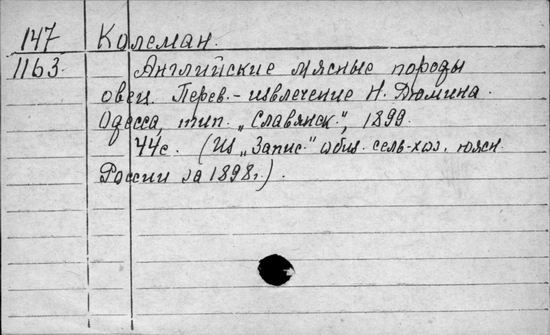 147 Колеман.
1163. Английские мясные породы
овец. Перев.-извлечение Н. Дюмина.
Одесса, тип. „Славянск.", 1899.
44с. (Из „Запис." общ. сель-хоз. южн.
России за 1898г.).